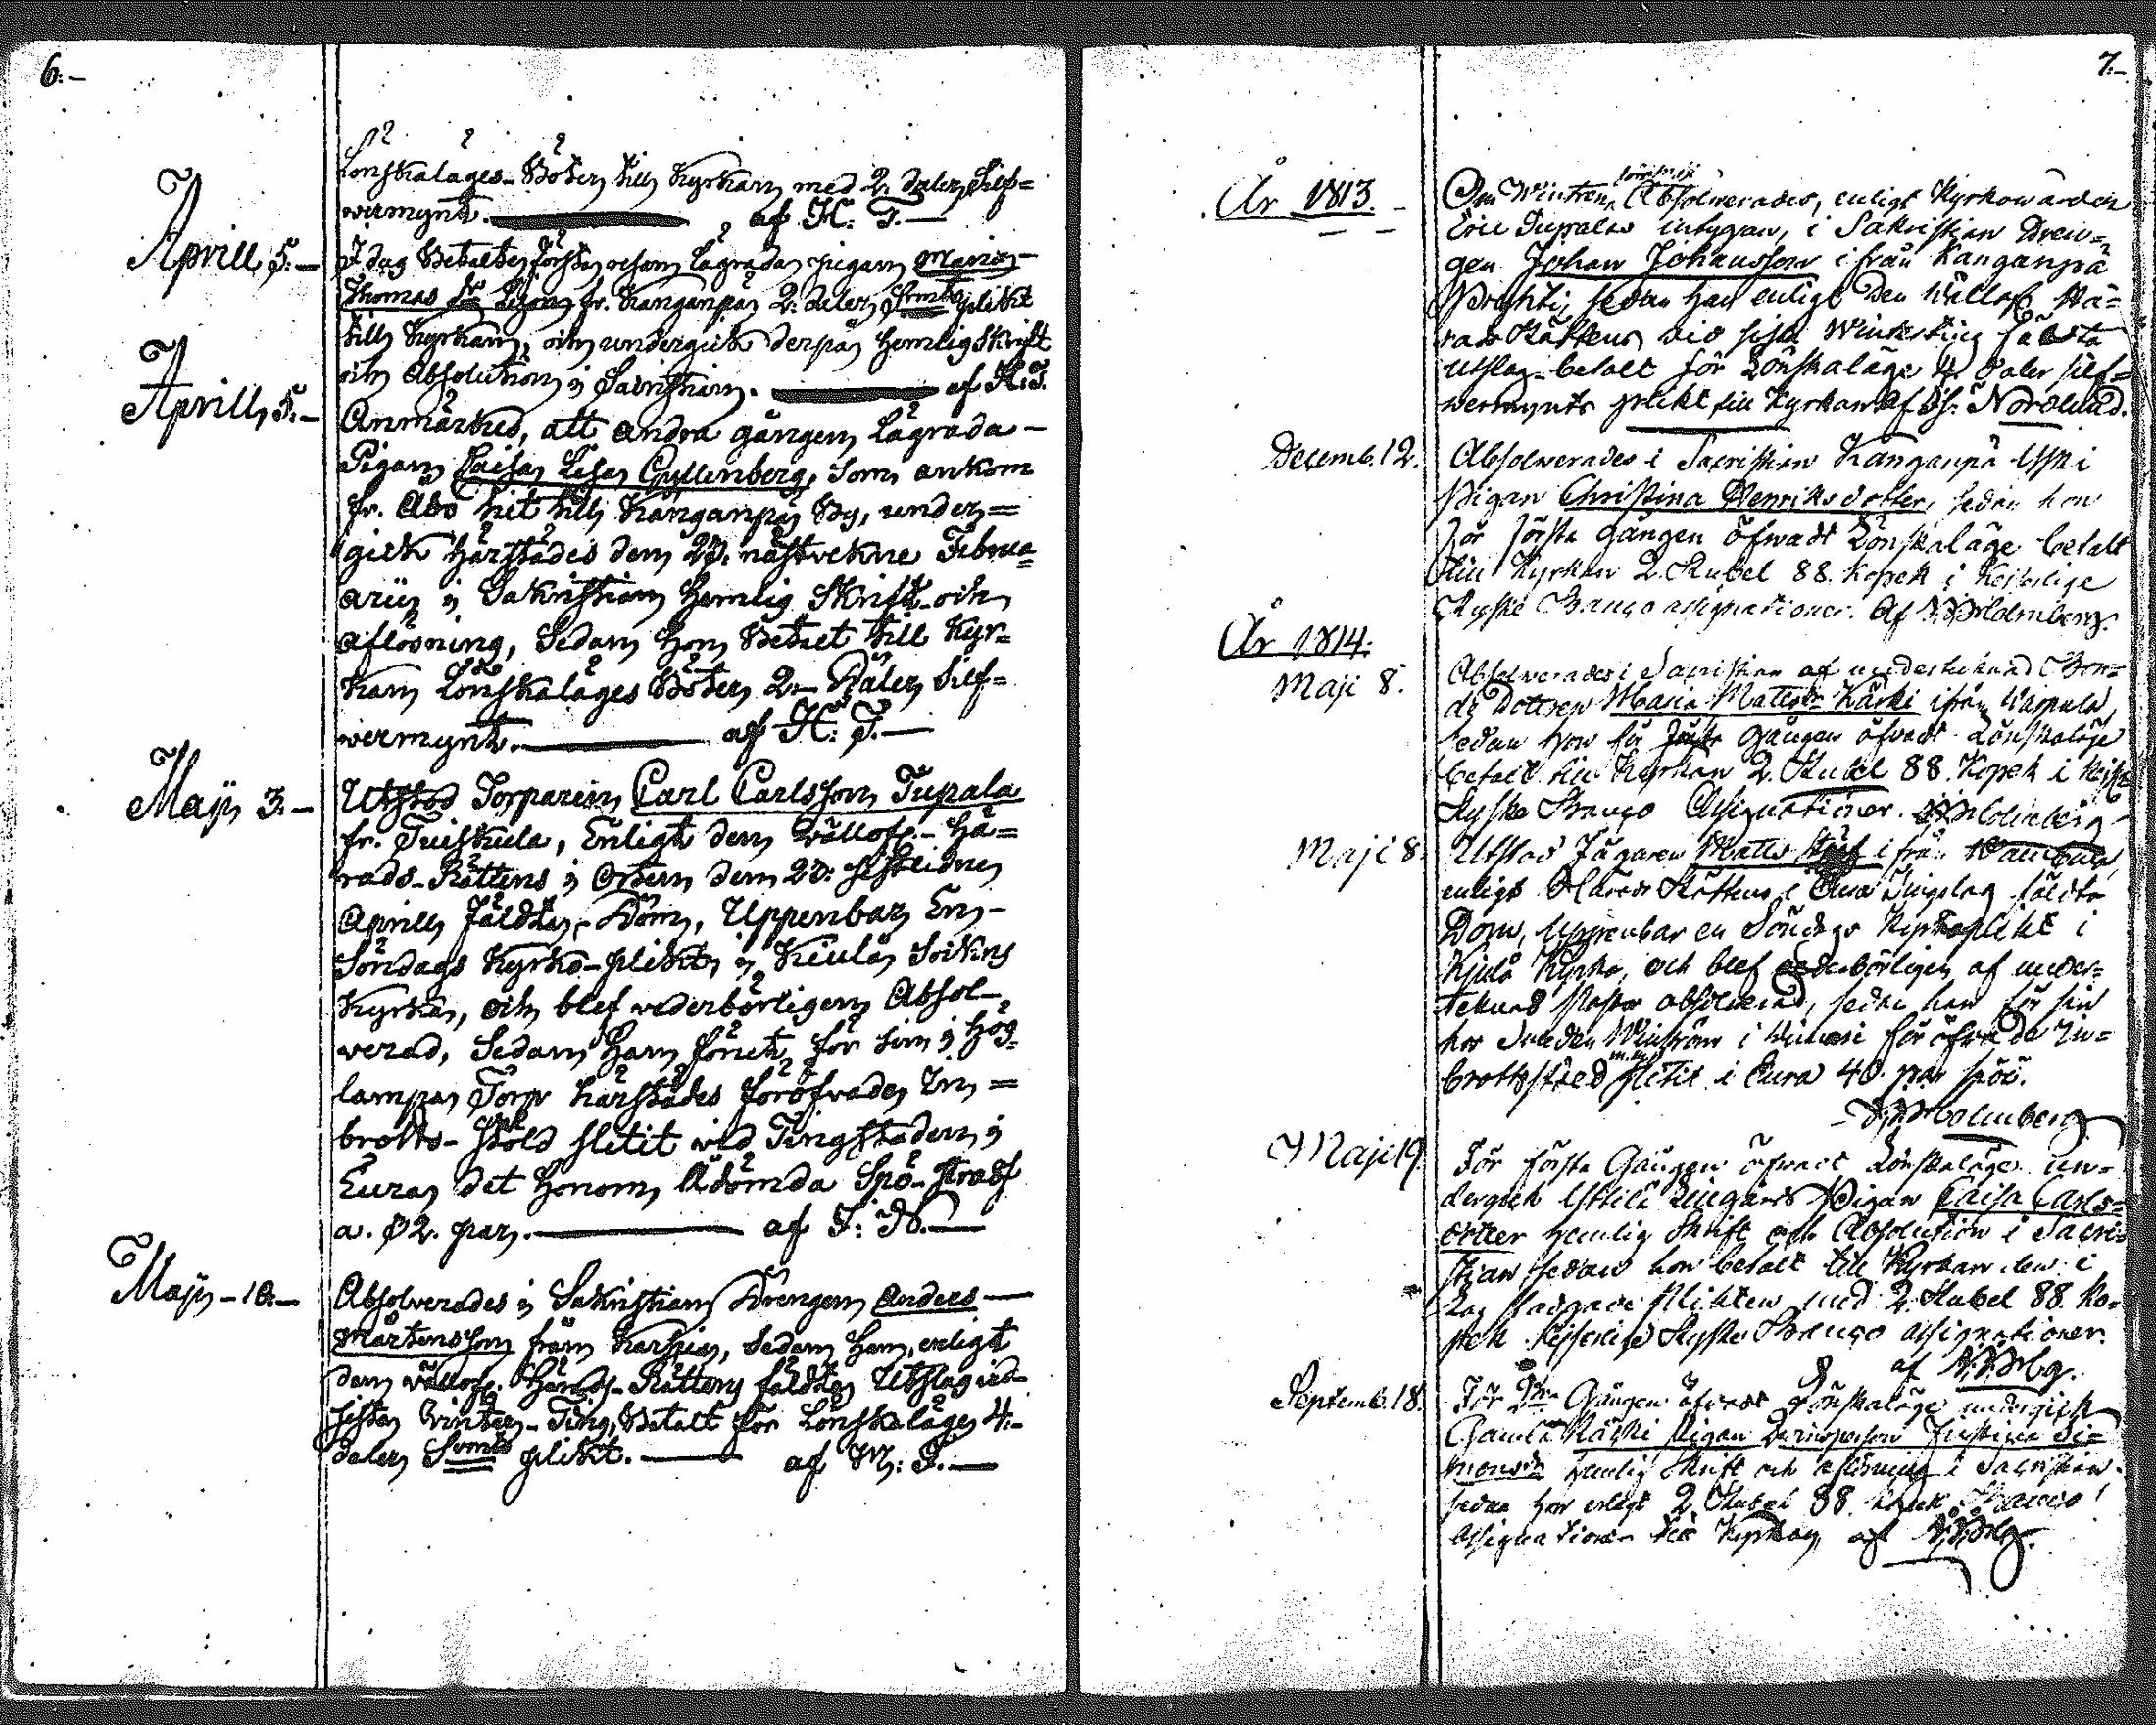 6.-
Lönskalages-Böter till Kyrkan med 2. daler Silf=
wermynt. af H: T.
Aprill 5.-
I dag Betalte första resan lägrada pigan Maria
Thomas dr fr. Kanganpä 2. daler Srmts plikt
till Kyrkan, och undergick derpå hemlig Skrift
och Absolution i Sacristian. af H: T.
Aprill 5.-
Anmärktes, att andra gången lägrada
Pigan Caisa Lisa Gyllenberg, som ankom
fr. Åbo hit till Kanganpä By, under=
gick härstädes den 23. nästvekne Februa=
arii i Sakristian hemlig Skrift och
aflösning, Sedan hon Betalt till Kyr=
kan Lönskalages Böter 2.- Daler Silf=
wermynt. af H: T.
Maji 3.-
Utstod Torparen Carl Carlsson Tupala
fr. Tuiskula, Enligt den Wällofl.- Hä=
rads-Rättens i Orten den 23: sistlidne
Aprill fäldta Dom, Uppenbar En
Söndags Kyrko-plikt i Kiulå Sockns
Kyrka, och blef vederbörligen Absol-
verad, Sedan Han förut för sin i Hög-
lampa Torp härstädes föröfvade In=
brotts-Stöld slitit wid Tingstaden i
Eura det Honom Ådömda Spö-straff
a. 32. par. af
Maji - 10.-
Absolverades i Sakristian Drengen Anders
Mårtensson från Karhia, Sedan Han, enligt
den wällofl. Härads-Rättens fäldta Utslag wid
sista Winter-Ting, Betalt för Lönskaläge 4.-
daler Srmts plikt. af
7.-
År 1813.
Om Wintren Absolverades, enligt Kyrkowärden
Eric Tupalas intygan, i Sakristian Dren=
gen Johan Johansson ifrån Kanganpä
sedan han enligt Den Wällofl. Hä=
rads Rättens wid sista Winterting fälda
utslag betalt för Lönskaläge 4 Daler silf=
wermynts plikt till Kyrkan af Nordlund.
Decemb. 12.
Absolverades i Sacristian Kanganpä
Pigan Christina Henriksdotter, sedan hon
för första gången öfwadt Lönskaläge betalt
till Kyrkan 2. Rubel 88. Kopek i Kejserlige
Ryske Banco assignationer. Af Holmberg.
År 1814.
Maji 8.
Absolverades i Sacristian af undertecknad Bon=
de Dottren Maria Mattsdr Kärki ifrån
sedan hon för första Gången öfvadt Lönskaläge
betalt till Kyrkan 2. Rubel 88. Kopek i
Ryske Banco Assignationer. Holmberg
Maji 8.
Utstod Jägaren Matts ifrån
enligt Härads Rättens i Eura Tingslag fäldta
Dom, Uppenbar en Söndags Kyrkoplikt i
Kjulå Kyrka, och blef vederbörligen af under=
teknad Pastor absolverad, sedan han för sin
hos Winström i föröfvade In=
brottsstöld slitit i Eura 40 par spö.
Holmberg
Maji 19
För första Gången öfvadt Lönskaläge un=
dergick Pigan Caisa Carls=
dotter hemlig Skrift och Absolution i Sacri=
stian sedan hon betalt till Kyrkan den i
Lag stadgade Plikten med 2. Rubel 88. Ko=
pek Kejserlige Ryske Banco assignationer.
af
Septemb. 18.
För Gången öfvadt Lönskaläge undergick
Gamla Justina Si=
monsdr hemlig Skrift och aflösning i Sacristian
sedan hon erlagt 2 Rubel 88. Kopek Banco
Assignationer till Kyrkan af